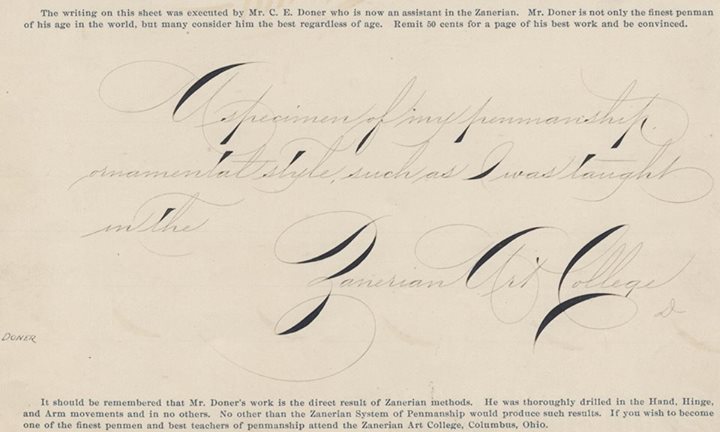 The writing on this sheet was executed by Mr. C. E. Doner who is now an assistant in the Zanerian. Mr. Doner is not only the finest penman
of his age in the world, but many consider him the best regardless of age. Remit 50 cents for a page of his best work and be convinced.
A specimen of my penmanship
ornamental style, such as I was taught
in the
Zanerian Art College
D-
DONER
It should be remembered that Mr. Doner's work is the direct result of Zanerian methods. He was thoroughly drilled in the Hand, Hinge,
and Arm movements and in no others. No other than the Zanerian System of Penmanship would produce such results. If you wish to become
one of the finest penmen and best teachers of penmanship attend the Zanerian Art College, Columbus, Ohio.